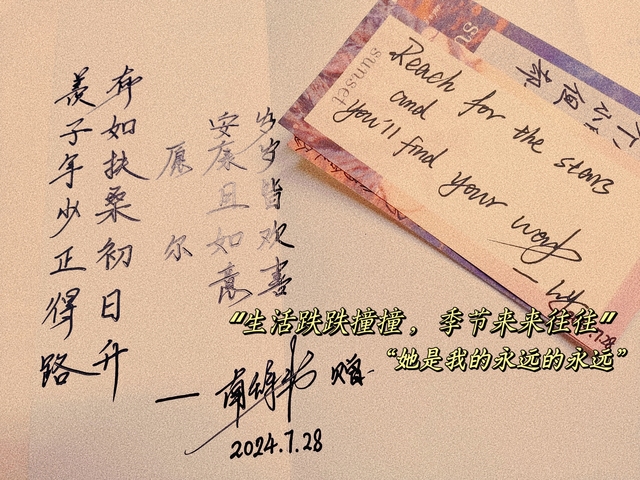 羡子年少正得路
有如扶桑初日升
愿尔
安康且如意
岁岁皆欢喜
赠
2024.7.28
sunset
Reach for the stars
and
you'll find your
"生活跌跌撞撞，季节来来往往"
"她是我的永远的永远"